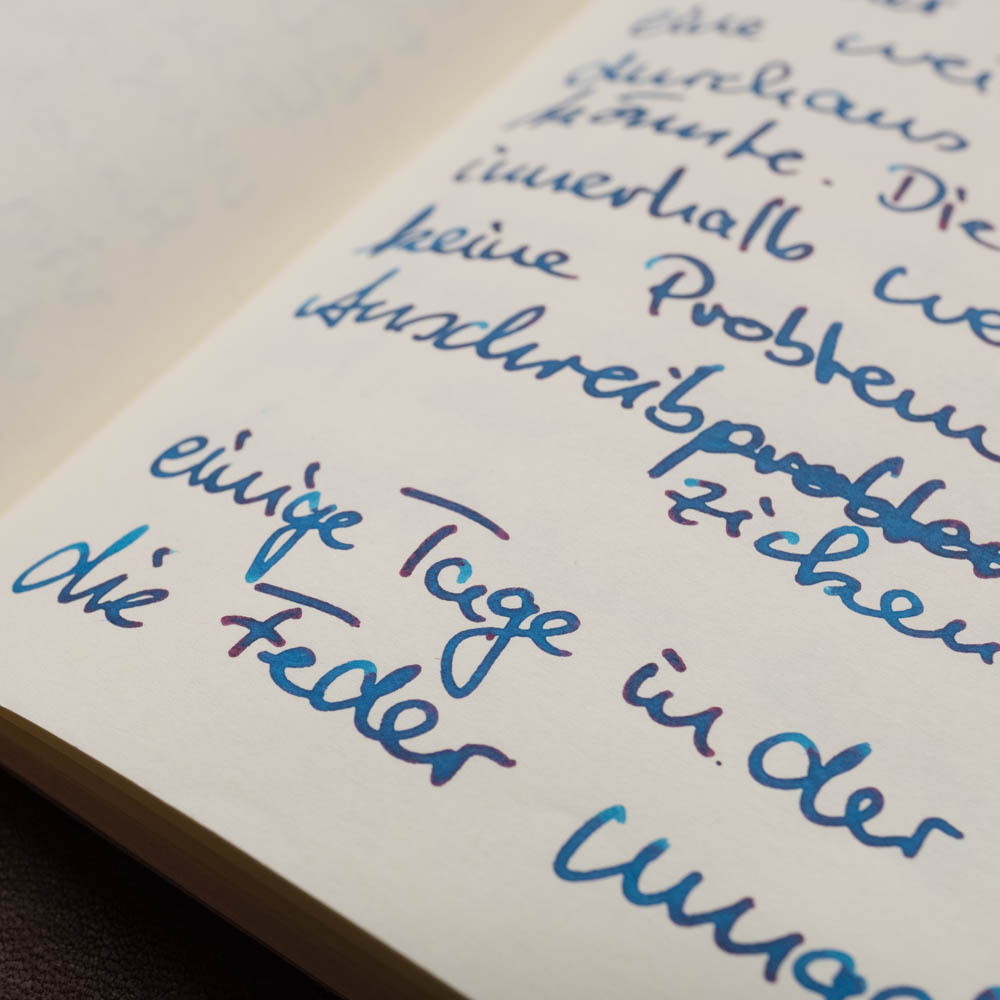 eine wei
durchaus
könnte. Die
innerhalb we
keine Problem
Anschreibproble
zicken
einige Tage in der
die Feder